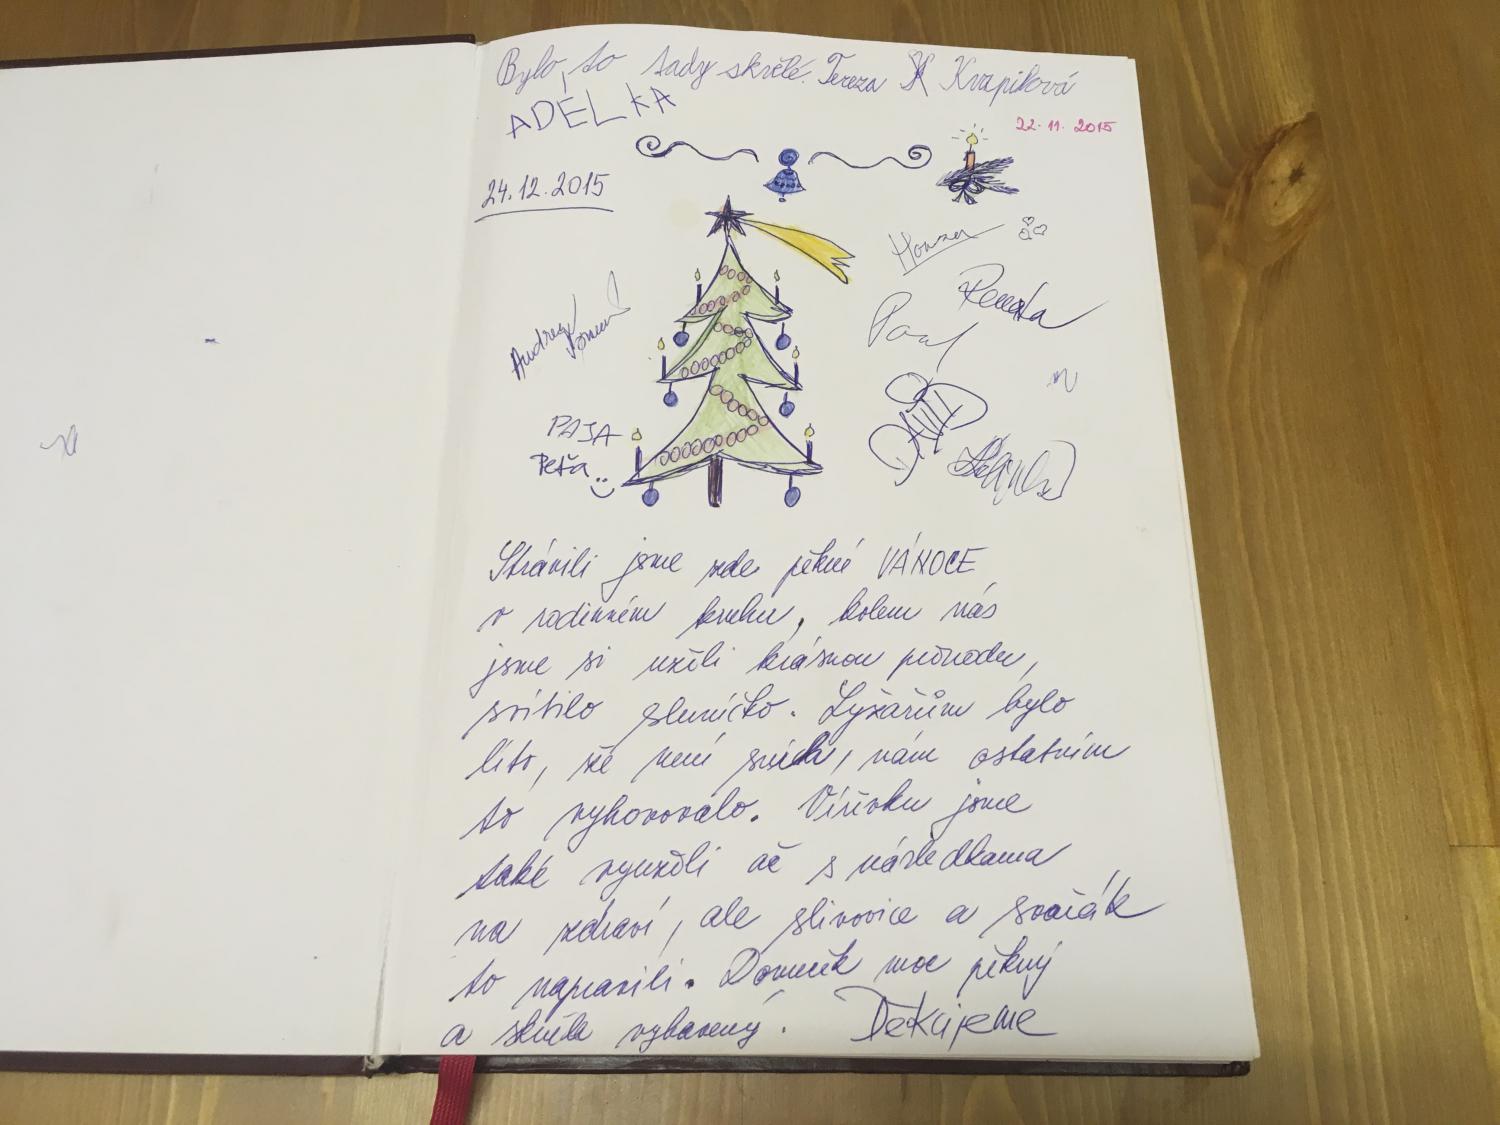 Bylo to tady skvělé. Tereza Kvapilová
ADÉLKA
22. 11. 2015
24.12.2015
Honza
Renata
Andrea
Pavl
DAVID
PAJA
Peťa
Strávili jsme zde pěkné VÁNOCE
v rodinném kruhu, kolem nás
jsme si užili krásnou přírodu,
svítilo sluníčko. Lyžařům bylo
líto, že není sních, nám ostatním
to vyhovovalo. Vířivku jsme
také využili ač s následkama
na zdraví, ale slivovice a svařák
to napravili. Domeček moc pěkný
a skvěle vybavený. Děkujeme